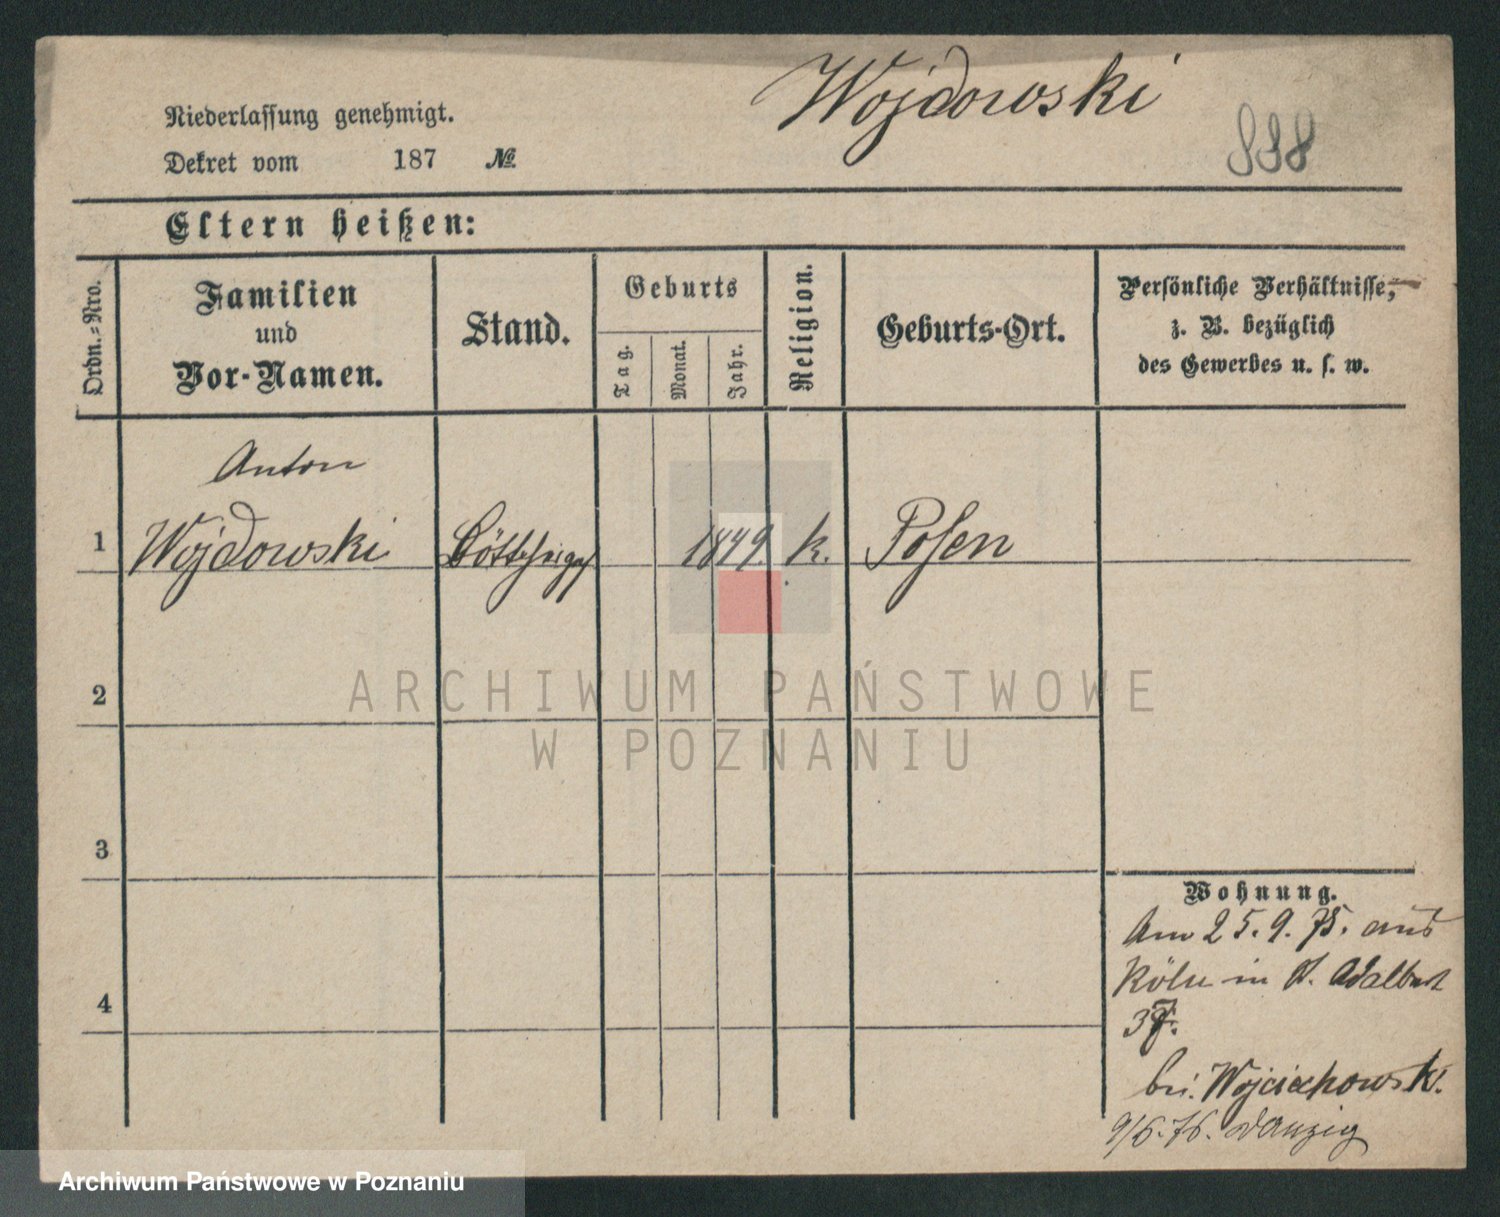 Wojdowski
Niederlassung genehmigt.
Dekret vom 187 №
Eltern heißen:
Ordn.-Nro.
Familien
und
Vor-Namen.
Stand.
Geburts
Tag.
Monat.
Jahr.
Religion.
Geburts-Ort.
Persönliche Verhältnisse,
z. B. bezüglich
des Gewerbes u. s. w.
Anton
1 Wojdowski 1849. k. Posen
ARCHIWUM PAŃSTWOWE
W POZNANIU
2
3
4
Wohnung.
Am 25.9.75. aus
Köln in St. Adalbert
bei Wojciechowski.
9/6.76. Danzig
Archiwum Państwowe w Poznaniu